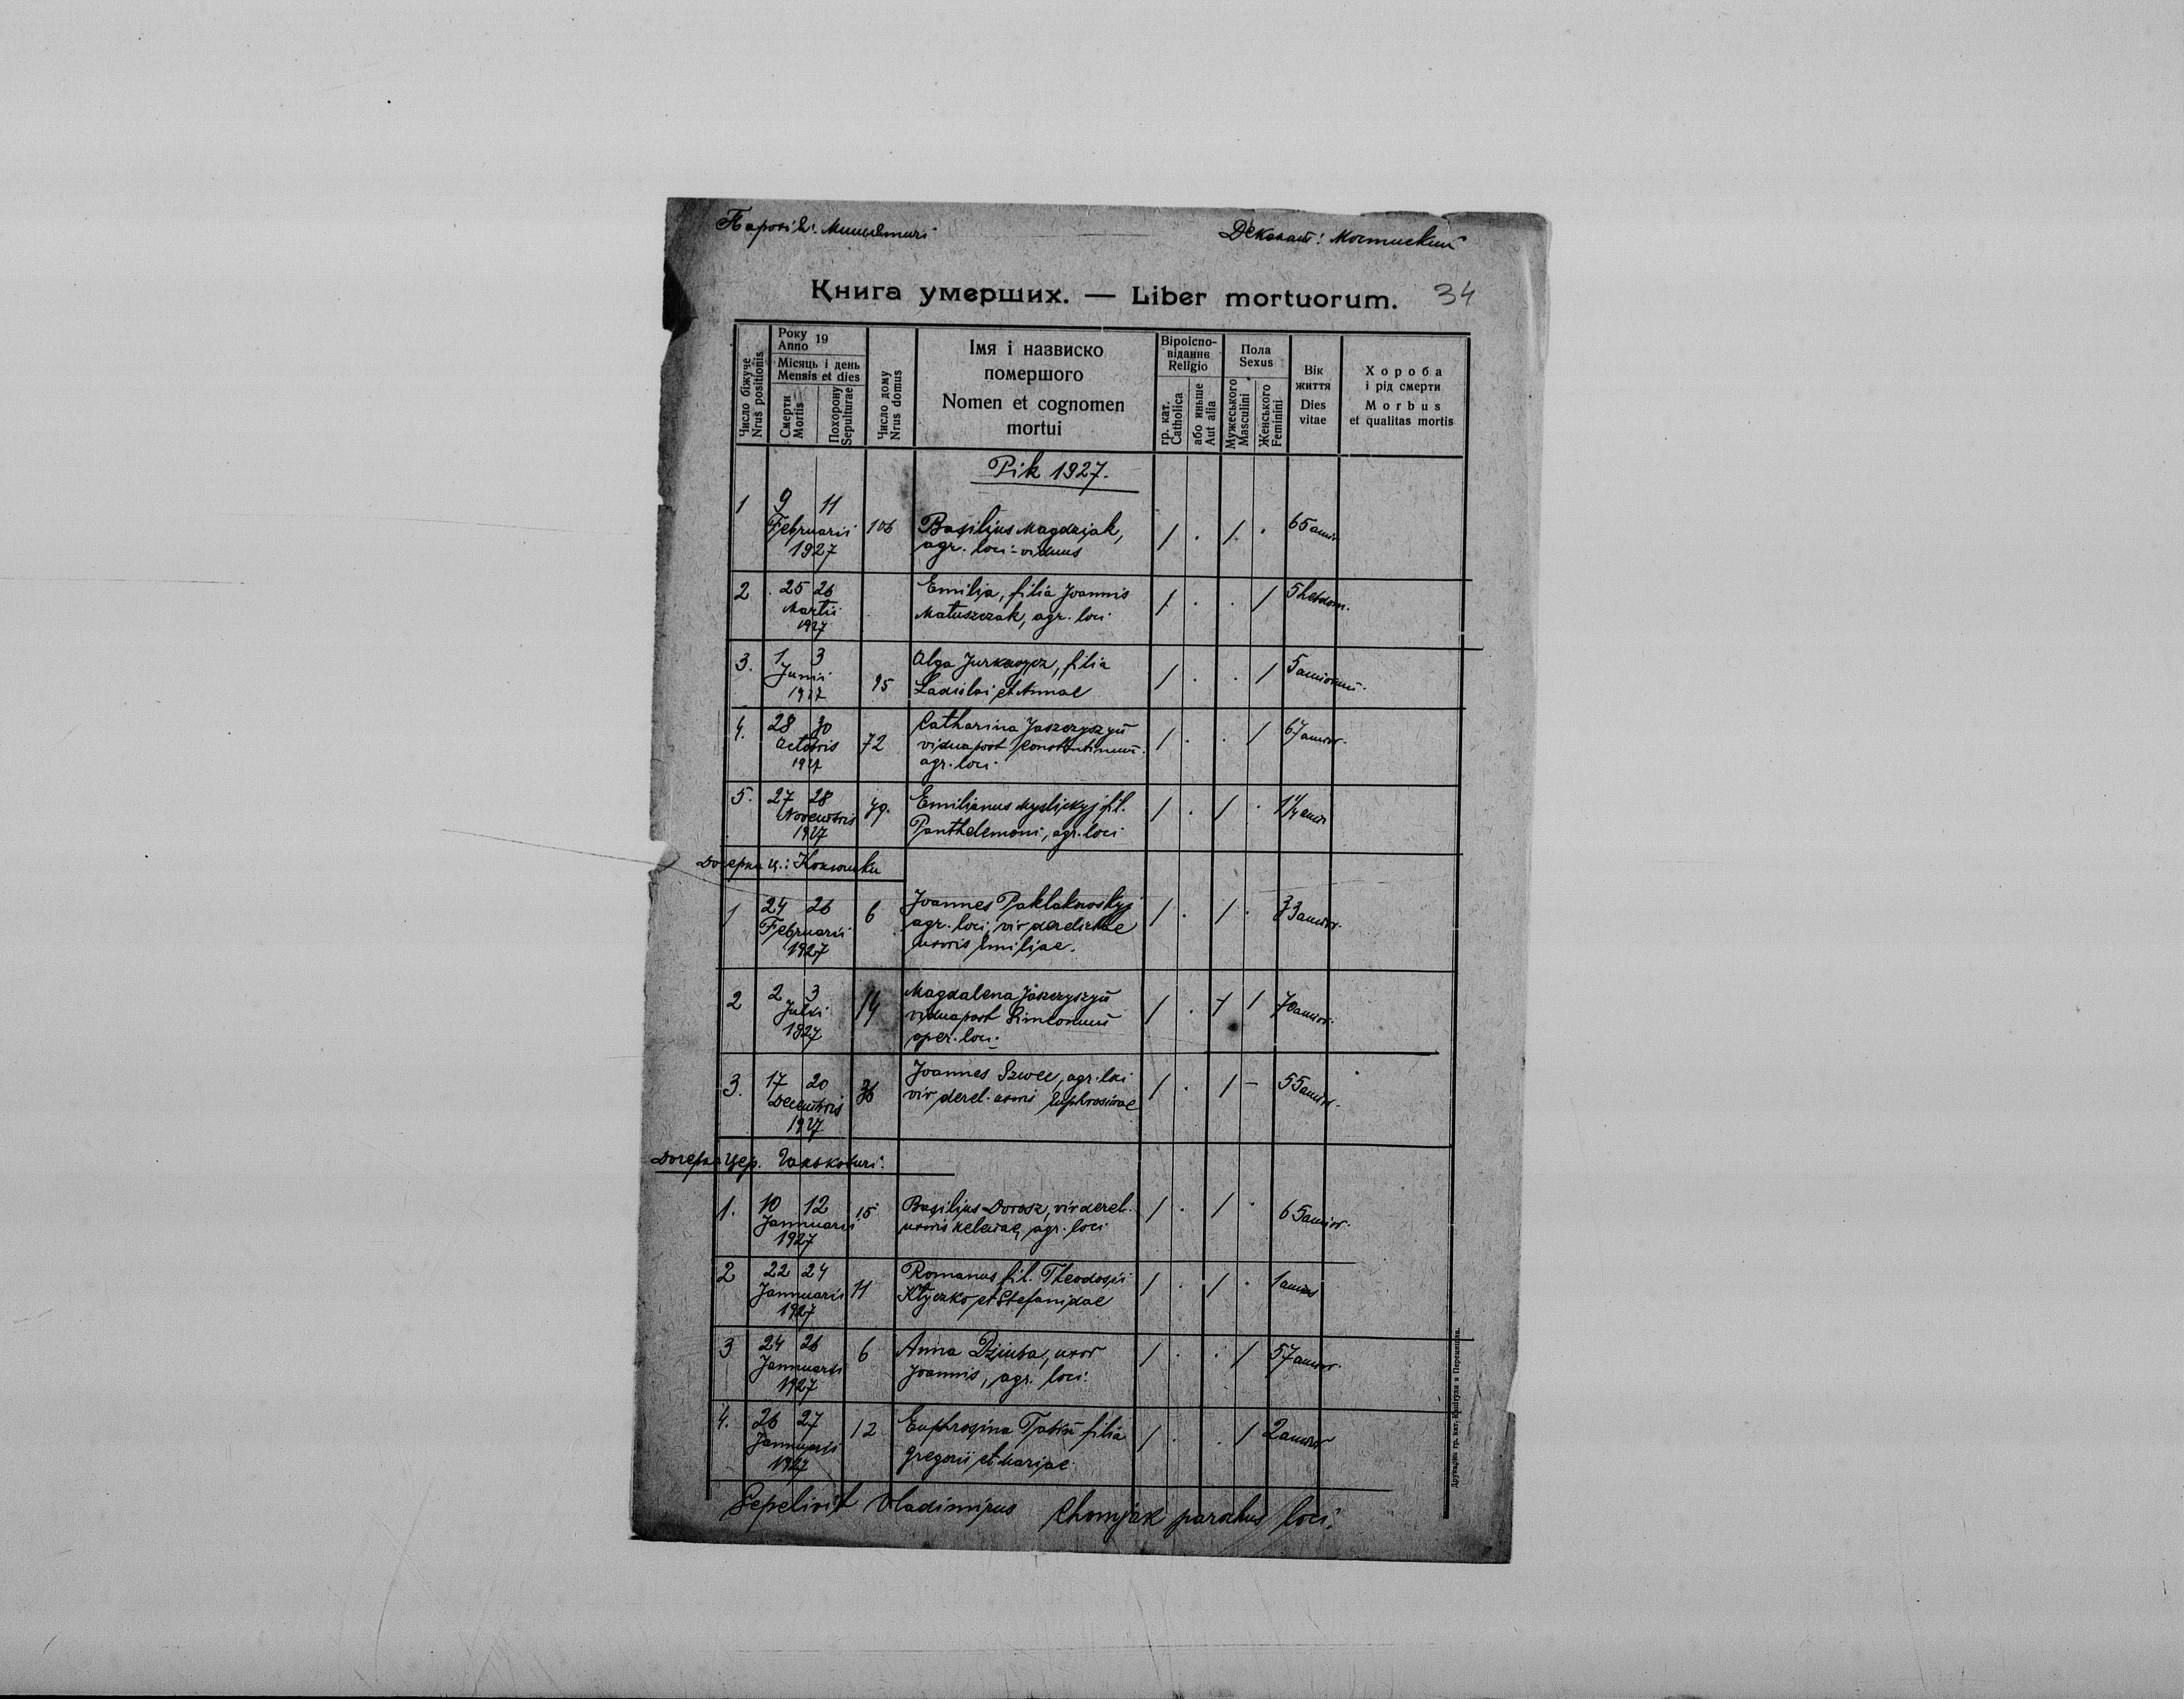 Парохія: Мишлятичі
Деканат: Мостиский
Книга умерших. — Liber mortuorum. 34
Число біжуче Nrus positionis
Року Anno 19
Місяць і день Mensis et dies
Смерти Mortis
Похорону Sepulturae
Число дому Nrus domus
Імя і назвиско
помершого
Nomen et cognomen
mortui
Віроісповіданнє Religio
гр. кат. Catholica
або иньше Aut alia
Пола Sexus
Мужеського Masculini
Женського Feminini
Вік життя Dies vitae
Хороба і рід смерти Morbus et qualitas mortis
Рік 1927.
1 9 11 Februarii 1927 106 Basilius Magdziak, / . / . 65 annor.
agr. loci - viduus
2 25 26 Martii 1927 Emilia, filia Joannis / . . / 5 hebdom.
Matuszczak, agr. loci
3. 1 3 Junii 1927 95 Olga Jurkewycz, filia / . . / 5 annorum
Ladislai et Annae
4. 28 30 Octobris 1927 72 Catharina Jaszczyszyn / . . / 67 annor.
vidua post Constantinum
agr. loci
5. 27 28 Novembris 1927 79. Emilianus Myslickyj fil. / . / . 1 1/4 anni
Panthelemoni, agr. loci
Дочерна ц.: Конюшки
1 24 26 Februarii 1927 6 Joannes Paklakowskyj / . / . 33 annor.
agr. loci, vir derelictae
uxoris Emiliae.
2 2 3 Julii 1927 14 Magdalena Jaszczyszyn / . / / 70 annor.
vidua post Simeonum
oper. loci
3. 17 20 Decembris 1927 36 Joannes Szwec, agr. loci / . / – 55 annor.
vir derel. uxoris Euphrosinae
Дочерна цер. Ганьковичі
1. 10 12 Januarii 1927 15 Basilius Dorosz, vir derel. / . / . 65 annor.
uxoris Helenae, agr. loci
2 22 24 Januarii 1927 11 Romanus fil. Theodosii / . / . 1 annus
Klyczko et Stefanidae
3 24 26 Januarii 1927 6 Anna Dziuba, uxor / . . / 57 annor.
Joannis, agr. loci
4. 26 27 Januarii 1927 12 Euphrosina filia / . . / 2 annor.
Gregorii et Mariae
Sepelivit Vladimirus Chomjak parochus loci.